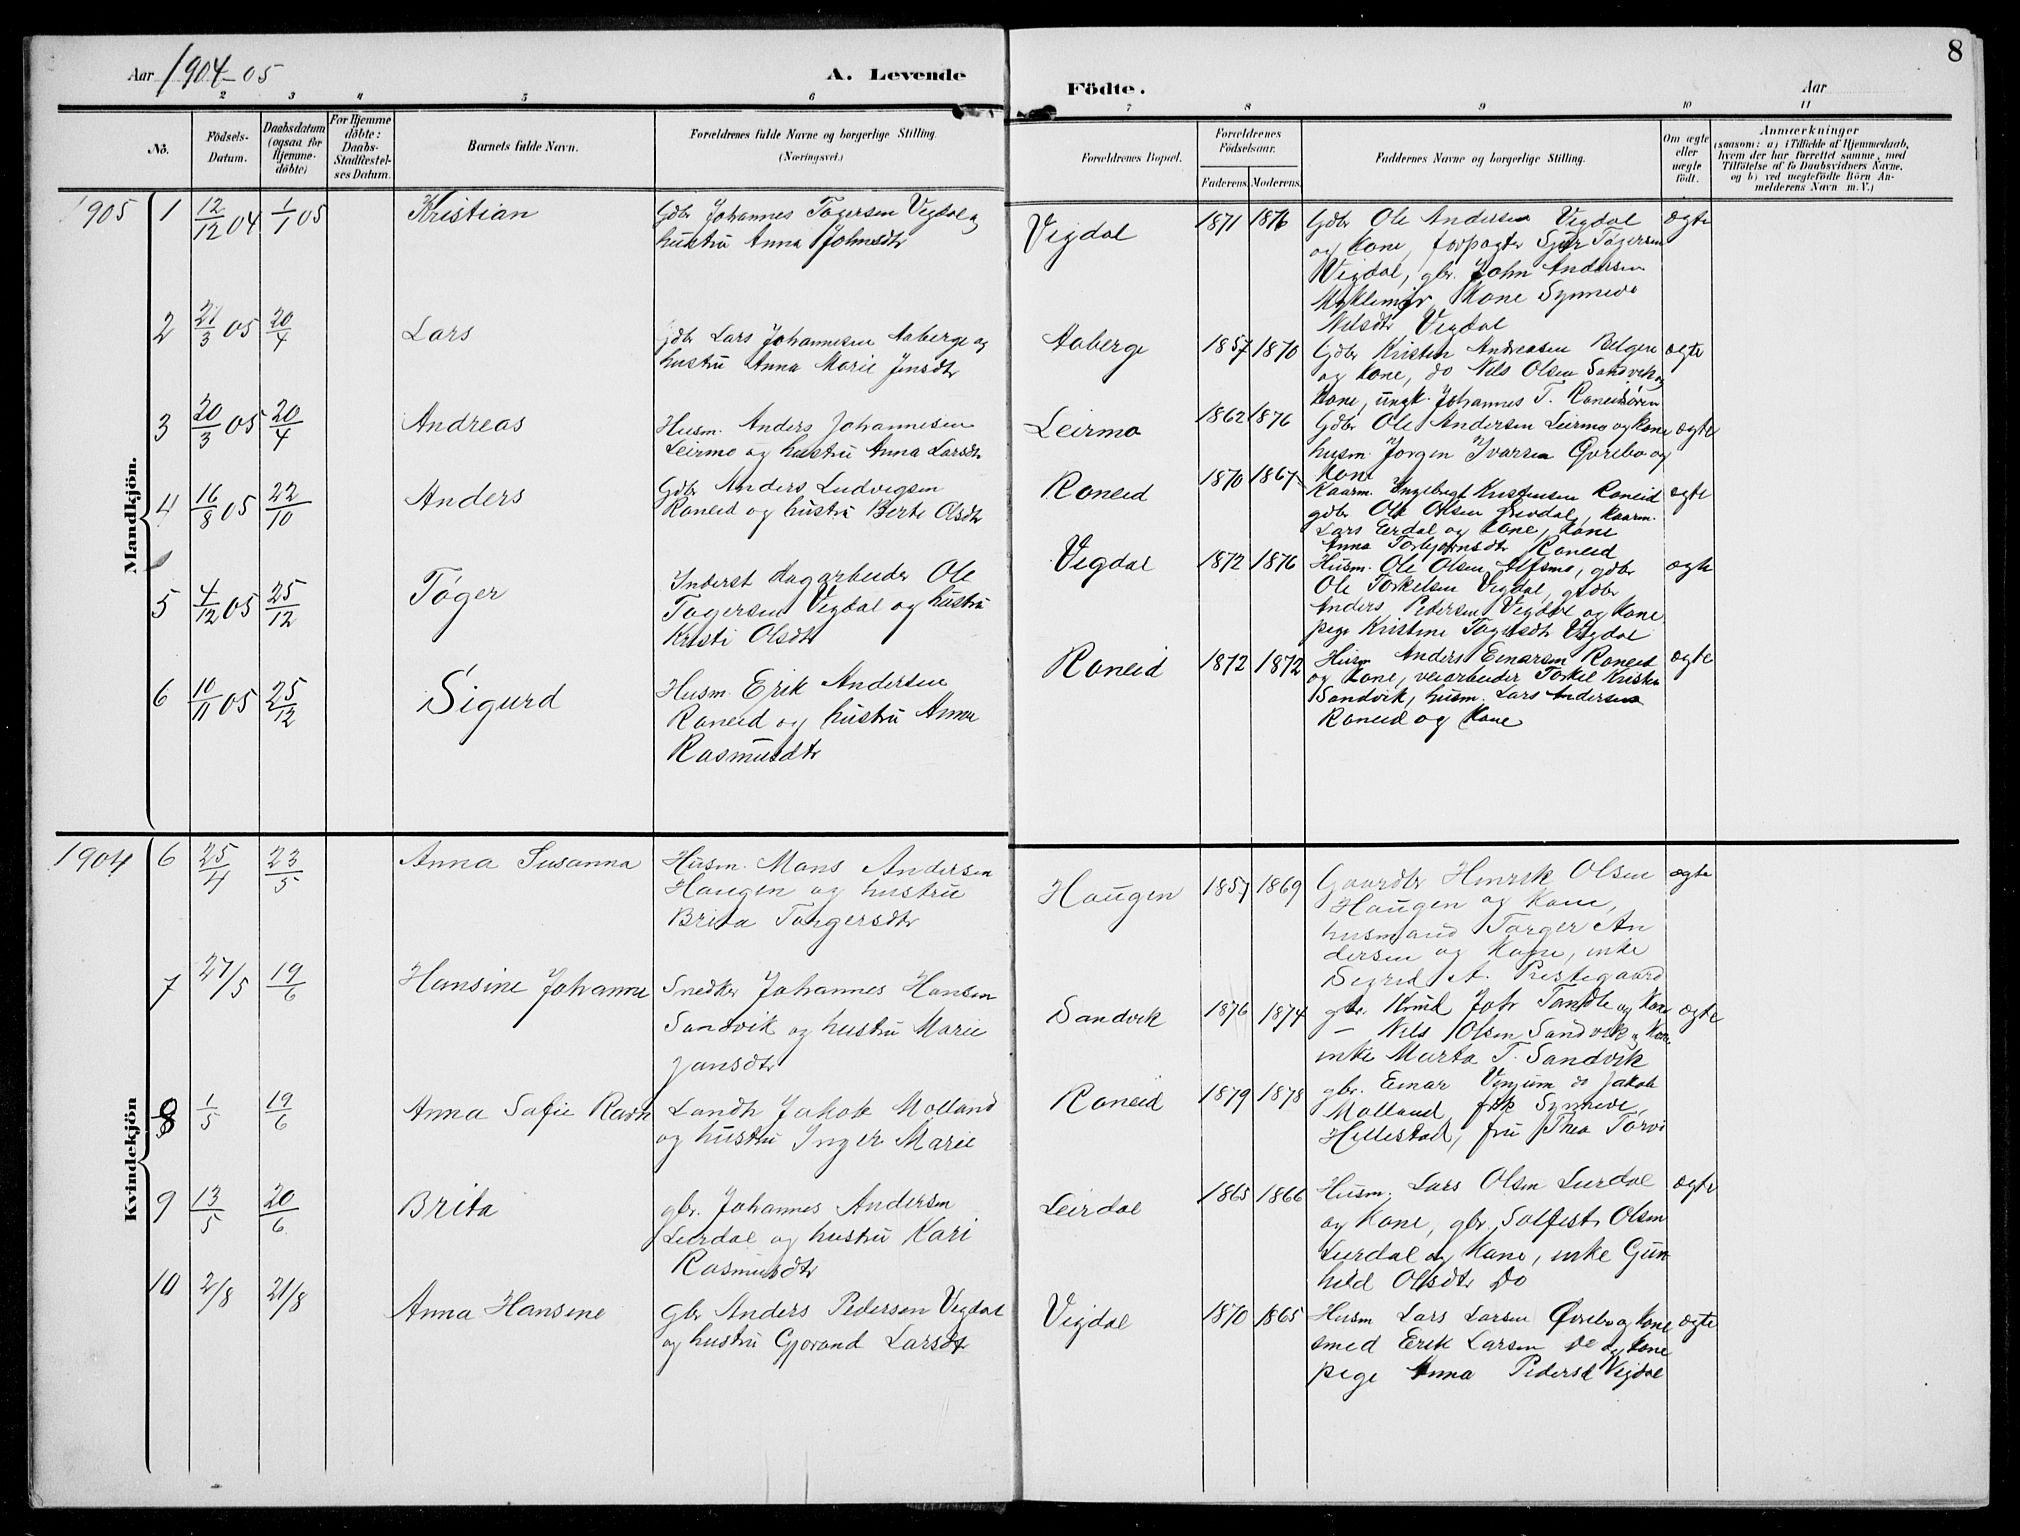 Aar 1904-05
A. Levende
Födte.
Aar
8
2 3 4 5 6 7 8 9 10 11
No.
Födsels-Datum.
Daabsdatum (ogsaa for Hjemme-döbte)
For Hjemme döbte: Daabs-Stadfæstel-ses Datum.
Barnets fulde Navn.
Forældrenes fulde Navne og borgerlige Stilling.
(Næringsvei.)
Forældrenes Bopæl.
Forældrenes Födselsaar.
Faderens. Moderens.
Faddernes Navne og borgerlige Stilling.
Om ægte eller uægte födt.
Anmærkninger
(saasom: a) i Tilfælde af Hjemmedaab, hvem der har forrettet samme, med Tilföielse af to Daabsvidners Navne, og b) ved uægtefödte Börn An-melderens Navn m. V.)
Mandkjön.
1905 1 12/12 04 1/1 05 Kristian
Gdbr Johannes Tøgersen Vigdal og
hustru Anna Johnsdtr
Vigdal 1871 1876
Gdbr Ole Andersen Vigdal
og Kone, forpagter Sjur Tøgersen
Vigdal, gbr. John Andersen
Myklemyr, Kone Synneve
Nilsdtr Vigdal
ægte
2 21/3 05 20/4 Lars
Gdbr Lars Johannesen Aaberge og
hustru Anna Marie Jensdtr
Aaberge 1857 1870
Gdbr Kristen Andreasen Bolgen
og Kone, do Nils Olsen Sandvik og
Kone, ungk. Johannes T. Roneidsøren
ægte
3 20/3 05 20/4 Andreas
Husm. Anders Johannesen
Leirmo og hustru Anna Larsdtr
Leirmo 1862 1876
Gdbr Ole Andersen Leirmo og Kone
husm. Jørgen Ivarsen Øvrebø og
Kone
ægte
4 16/8 05 22/10 Anders
Gdbr Anders Ludvigsen
Roneid og hustru Berte Olsdtr
Roneid 1870 1867
Kaarm. Ingebrigt Kristensen Roneid
gdbr Ole Olsen, kaarm.
Lars Eerdal og Kone, Kone
Anna Torbjørnsdtr Roneid
ægte
5 4/12 05 25/12 Tøger
Inderst dagarbeider Ole
Tøgersen Vigdal og hustru
Kristi Olsdtr
Vigdal 1872 1876
Husm. Ole Olsen Alfsmo, gdbr
Ole Torkelsen Vigdal, gdbr
Anders Pedersen Vigdal og Kone
pige Kristine Tøgersdtr Vigdal
ægte
6 10/11 05 25/12 Sigurd
Husm. Erik Andersen
Roneid og hustru Anna
Rasmusdtr
Roneid 1872 1872
Husm Anders Einarsen Roneid
og Kone, veiarbeider Torkel Kristen
Sandvik, husm. Lars Andersen
Roneid og Kone
ægte
Kvindekjön
1904 6 25/4 23/5 Anna Susanna
Husm. Mons Andersen
Haugen og hustru
Brita Torgersdtr
Haugen 1857 1869
Gaardbr Henrik Olsen
Haugen og Kone,
husmand Torger An
dersen og Kone, enke
Sigrid A. Prestegaard
ægte
7 27/5 19/6 Hansine Johanne
Snedker Johannes Hansen
Sandvik og hustru Marie
Jansdtr
Sandvik 1876 1874
gbr. Knud Joh Tandle og Kone
— Nils Olsen Sandvik og Kone
enke Marta T. Sandvik
ægte
8 1/5 19/6 Anna Sofie Ravn
Landh Jakob Molland
og hustru Inger Marie
Roneid 1879 1878
gbr. Einar Venjum do Jakob
Molland, frk Synneve
Hillestad, fru Thea Torvi
9 13/5 20/6 Brita
gbr. Johannes Andersen
Leirdal og hustru Kari
Rasmusdtr
Leirdal 1865 1866
Husm. Lars Olsen Leirdal
og Kone, gbr. Solfest Olsen
Leirdal og Kone, enke Gun
hild Olsdtr Do
ægte
10 2/8 21/8 Anna Hansine
Gbr Anders Pedersen Vigdal
og hustru Gjørand Larsdt
Vigdal 1870 1865
Husm Lars Larsen Øvrebø og Kone
smed Erik Larsen Do og Kone
pige Anna Pedersd Vigdal
ægte